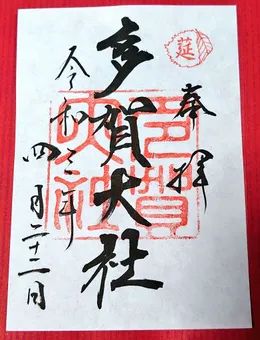 奉拝
莚
多賀大社
多賀大社
令和三年
四月二十二日